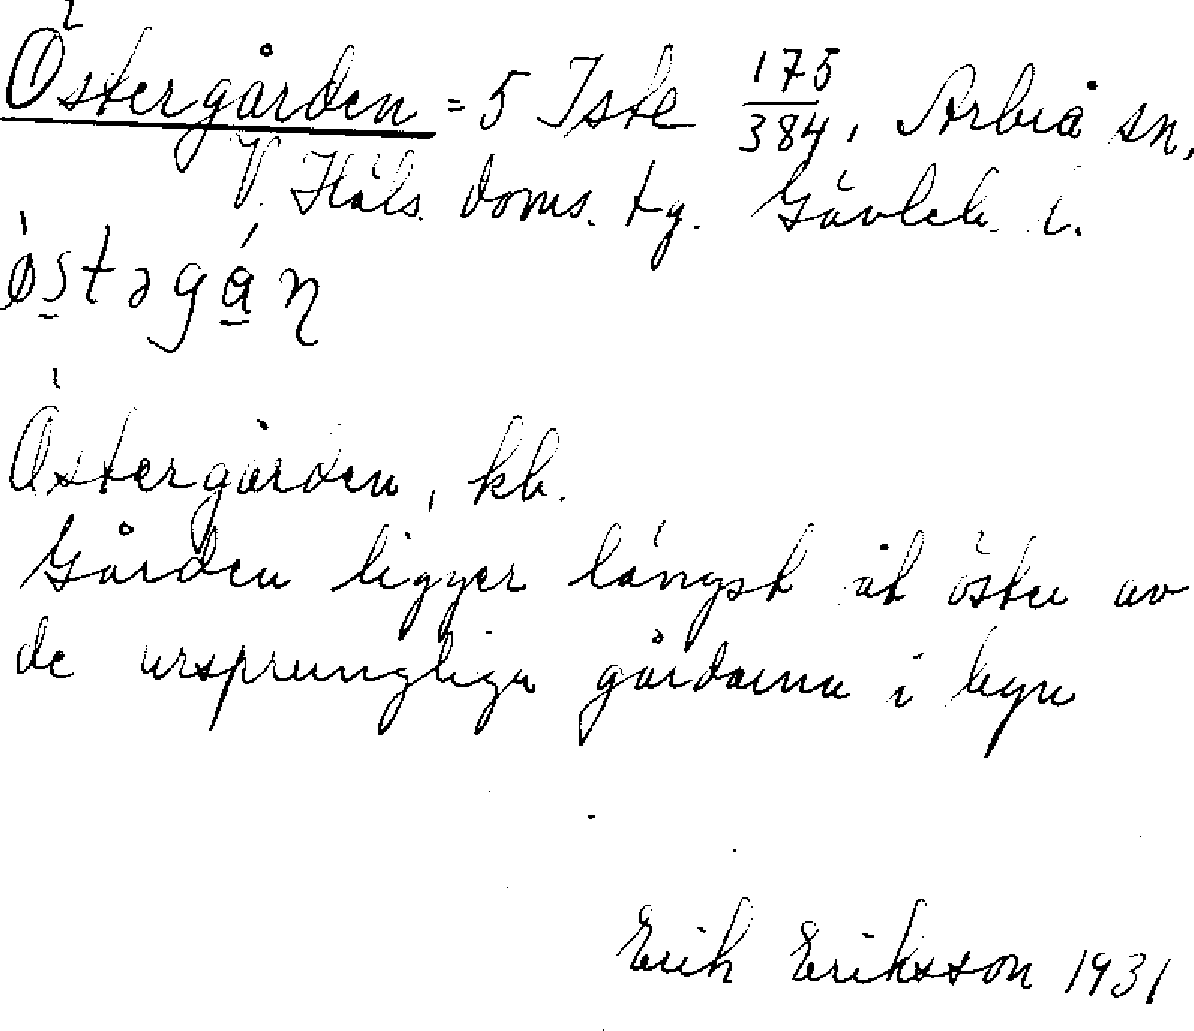 Östergården = 5 Iste 175/384, Arbrå sn,
V. Häls. doms. tg. Gävleb. l.
östəgán
Östergården, kb.
Gården ligger längst åt öster av
de ursprungliga gårdarna i byn
Erik Eriksson 1931